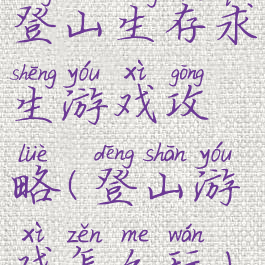 登山生存求
shēng yóu xì gōng
生游戏攻
lüè dēng shān yóu
略(登山游
xì zěn me wán
戏怎么玩)